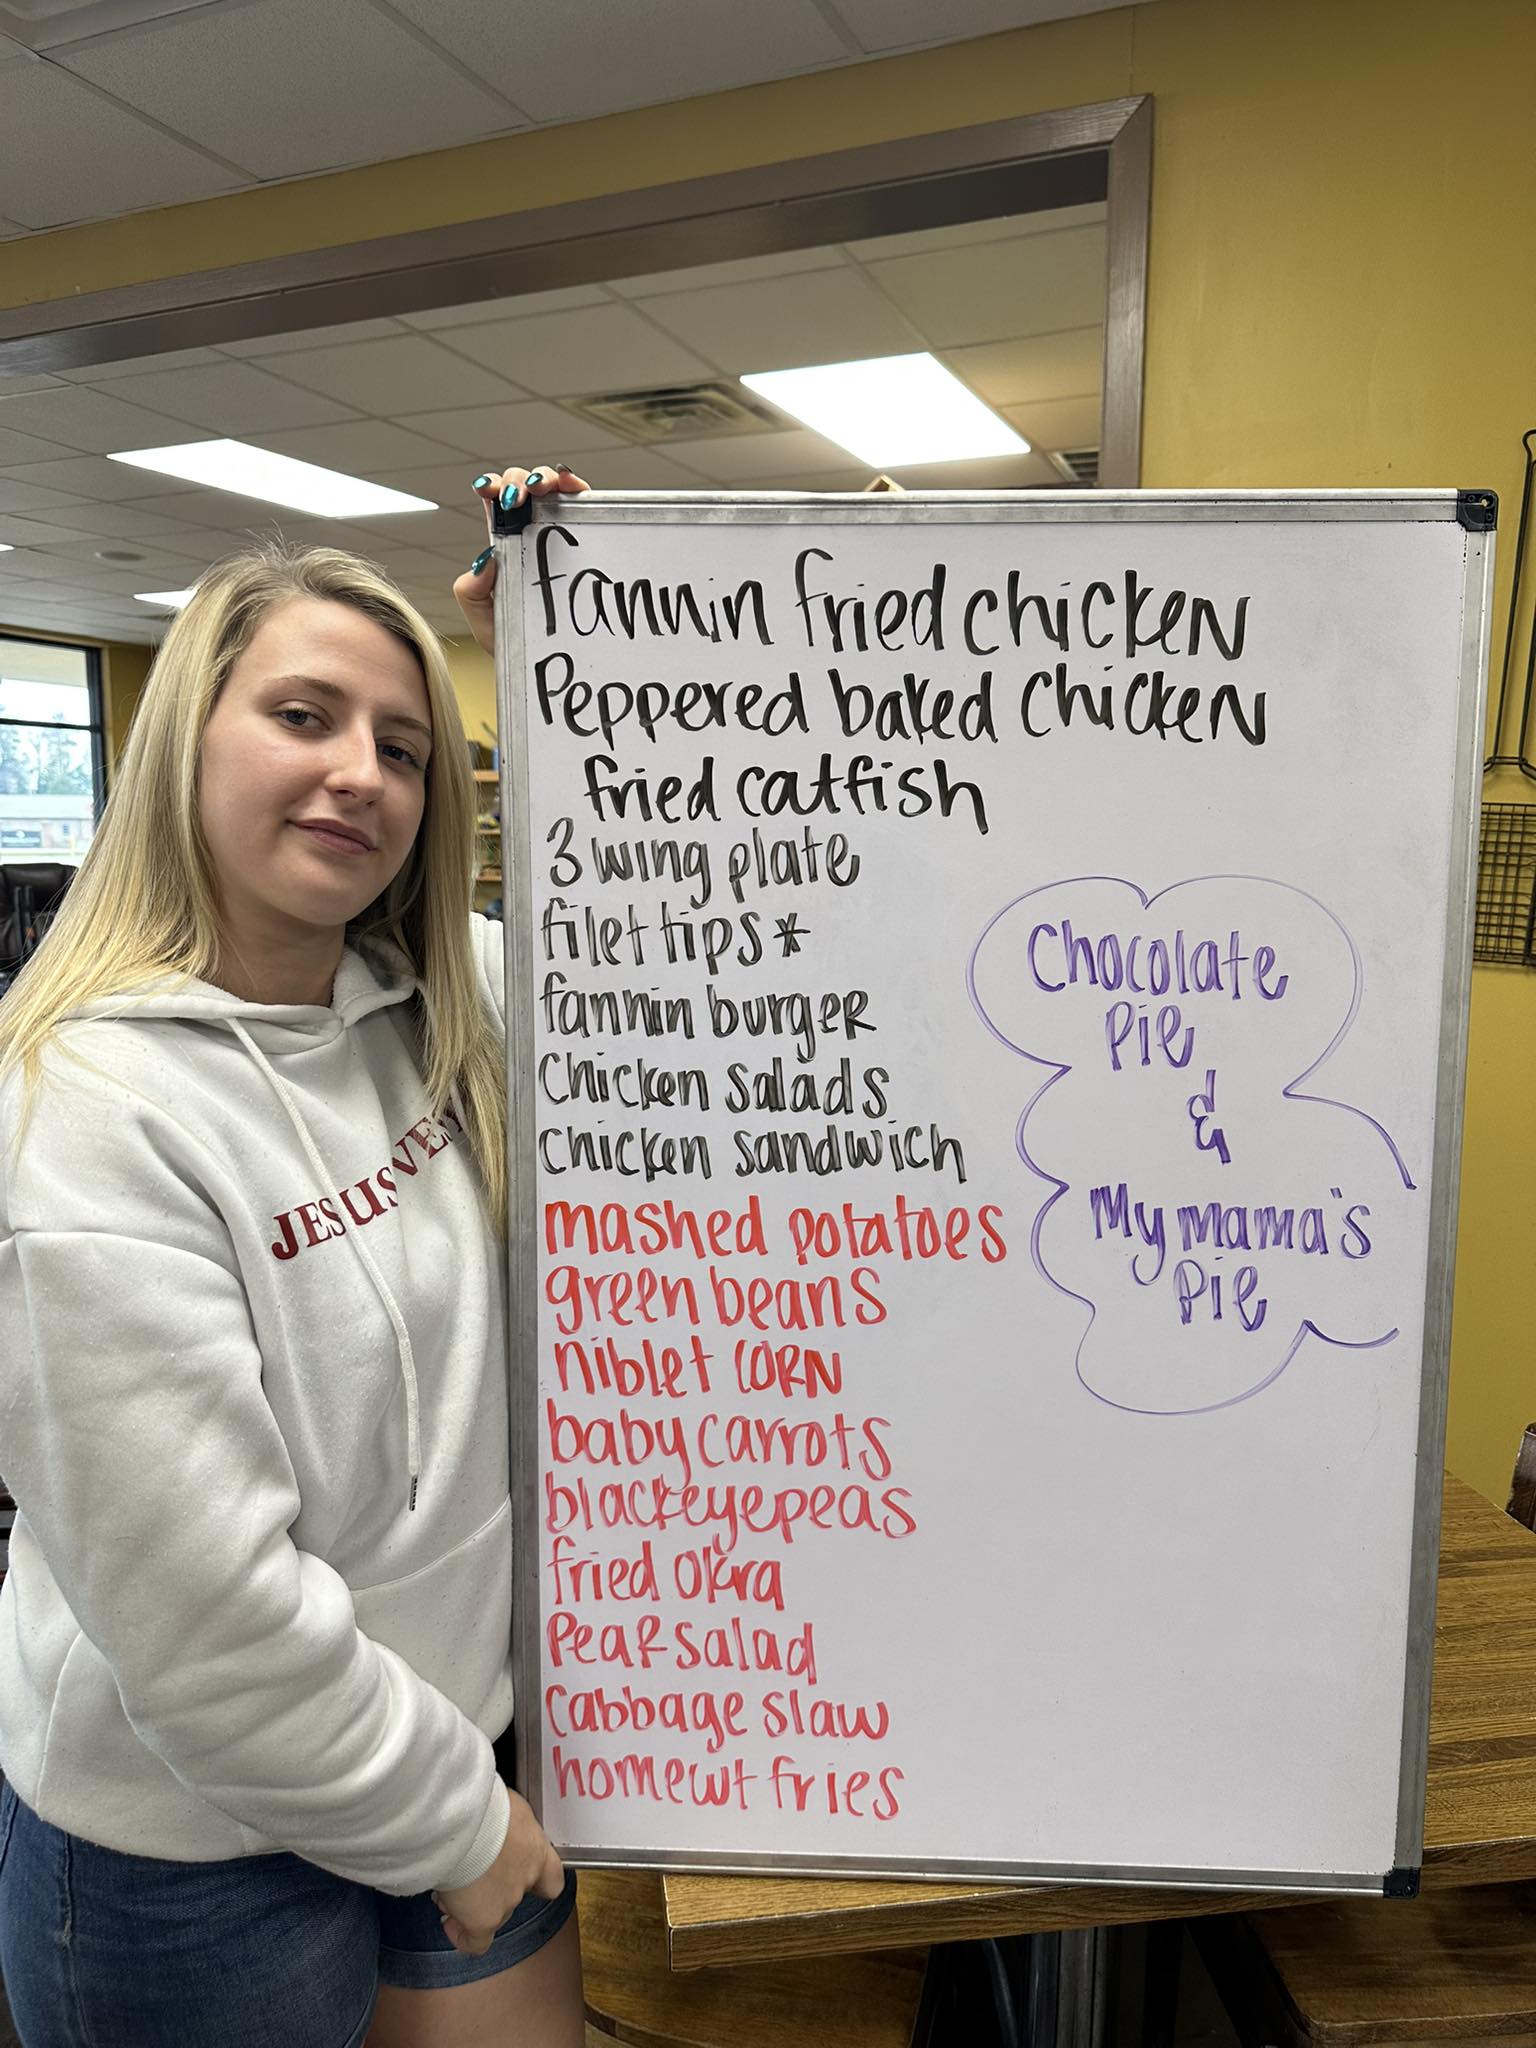 fannin fried chicken
Peppered baked chicken
fried catfish
3 wing plate
filet tips *
fannin burger
chicken salads
chicken sandwich
mashed potatoes
green beans
niblet corn
baby carrots
blackeyepeas
fried okra
Pear salad
cabbage slaw
homewt fries
Chocolate
Pie
&
My mama's
Pie
JESUS